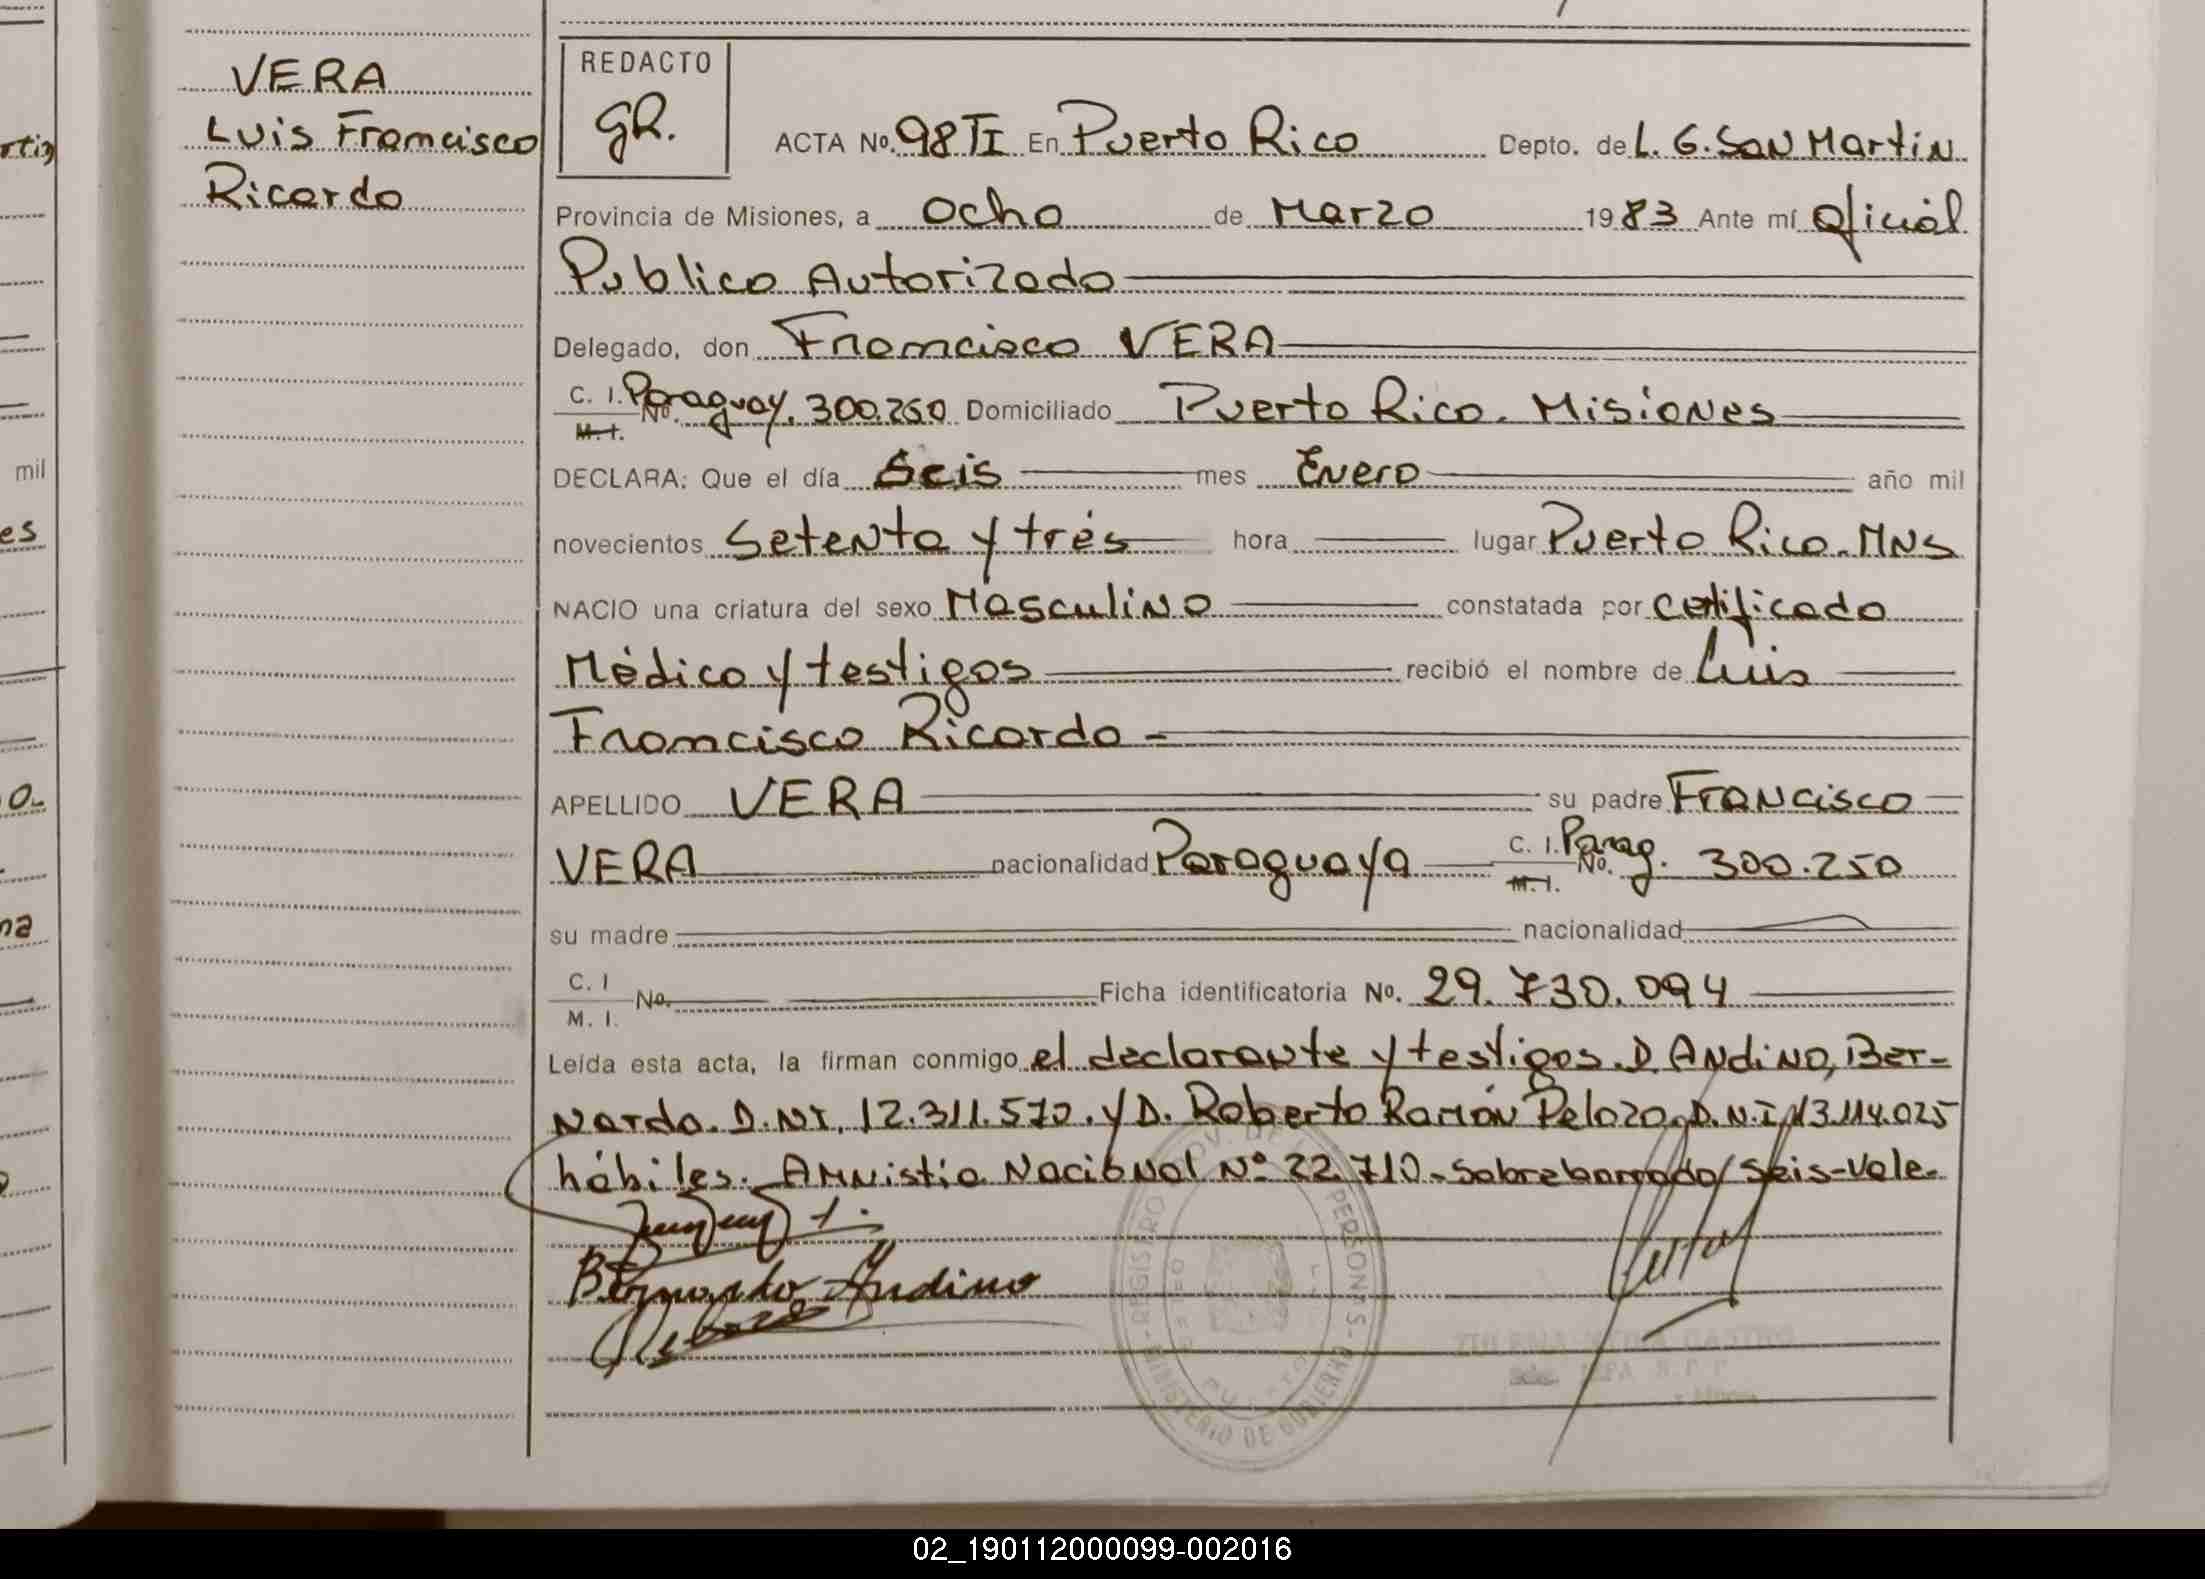 VERA
Luis Francisco
Ricardo
REDACTO
GR.
ACTA No. 98 TI En Puerto Rico Depto. de L. G. San Martin
Provincia de Misiones, a Ocho de Marzo 1983 Ante mí Oficial
Publico Autorizado
Delegado, don Francisco VERA
C. I. Paraguay. 300.250 Domiciliado Puerto Rico. Misiones
M. I. No.
DECLARA: Que el día Seis mes Enero año mil
novecientos Setenta y trés hora lugar Puerto Rico. MNS
NACIO una criatura del sexo Masculino constatada por certificado
Médico y testigos recibió el nombre de Luis
Francisco Ricardo -
APELLIDO VERA su padre Francisco
VERA nacionalidad Paraguaya C. I. Parag. 300.250
M. I. No.
su madre nacionalidad
C. I
M. I. No. Ficha identificatoria No. 29.730.094
Leída esta acta, la firman conmigo el declarante y testigos. D. Andino, Ber-
nardo. D.NI. 12.311.570. y D. Roberto Ramón Pelozo. D.N.I. 13.114.025
hábiles. Amnistia Nacional Nº 22.710. Sobreborrado/Seis-Vale.
Bernardo Andino
Pelozo
REGISTRO PERSONAS
MINISTERIO DE GOBIERNO
mil
es
02_190112000099-002016